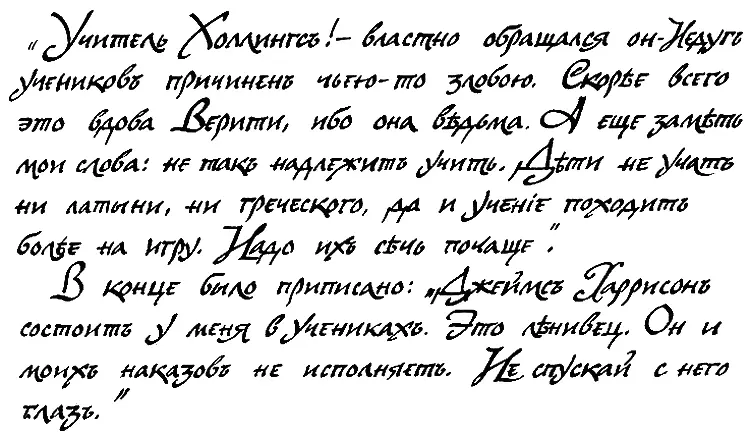 „Учитель Холлингсъ!– властно обращался он–Недугъ
учениковъ причиненъ чьею-то злобою. Скорѣе всего
это вдова Верити, ибо она вѣдьма. А еще замѣть
мои слова: не такъ надлежитъ учить. Дѣти не учатъ
ни латыни, ни греческого, да и ученіе походитъ
болѣе на игру. Надо ихъ сѣчь почаще".
В конце было приписано: „Джеймсъ Харрисонъ
состоитъ у меня в ученикахъ. Это лѣнивец. Он и
моихъ наказовъ не исполняетъ. Не спускай с него
глазъ."